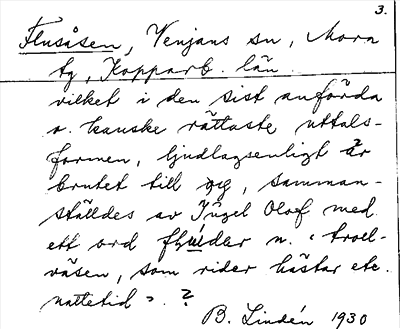 3.
Flusåsen, Venjans sn, Mora
tg, Kopparb. län.
vilket i den sist anförda
o. kanske rättaste uttals-
formen, ljudlagsenligt är
brutet till, samman-
ställdes av Jugel Olof med
ett ord n. "troll-
väsen, som rider hästar etc.
nattetid". ?
B. Lindén 1930